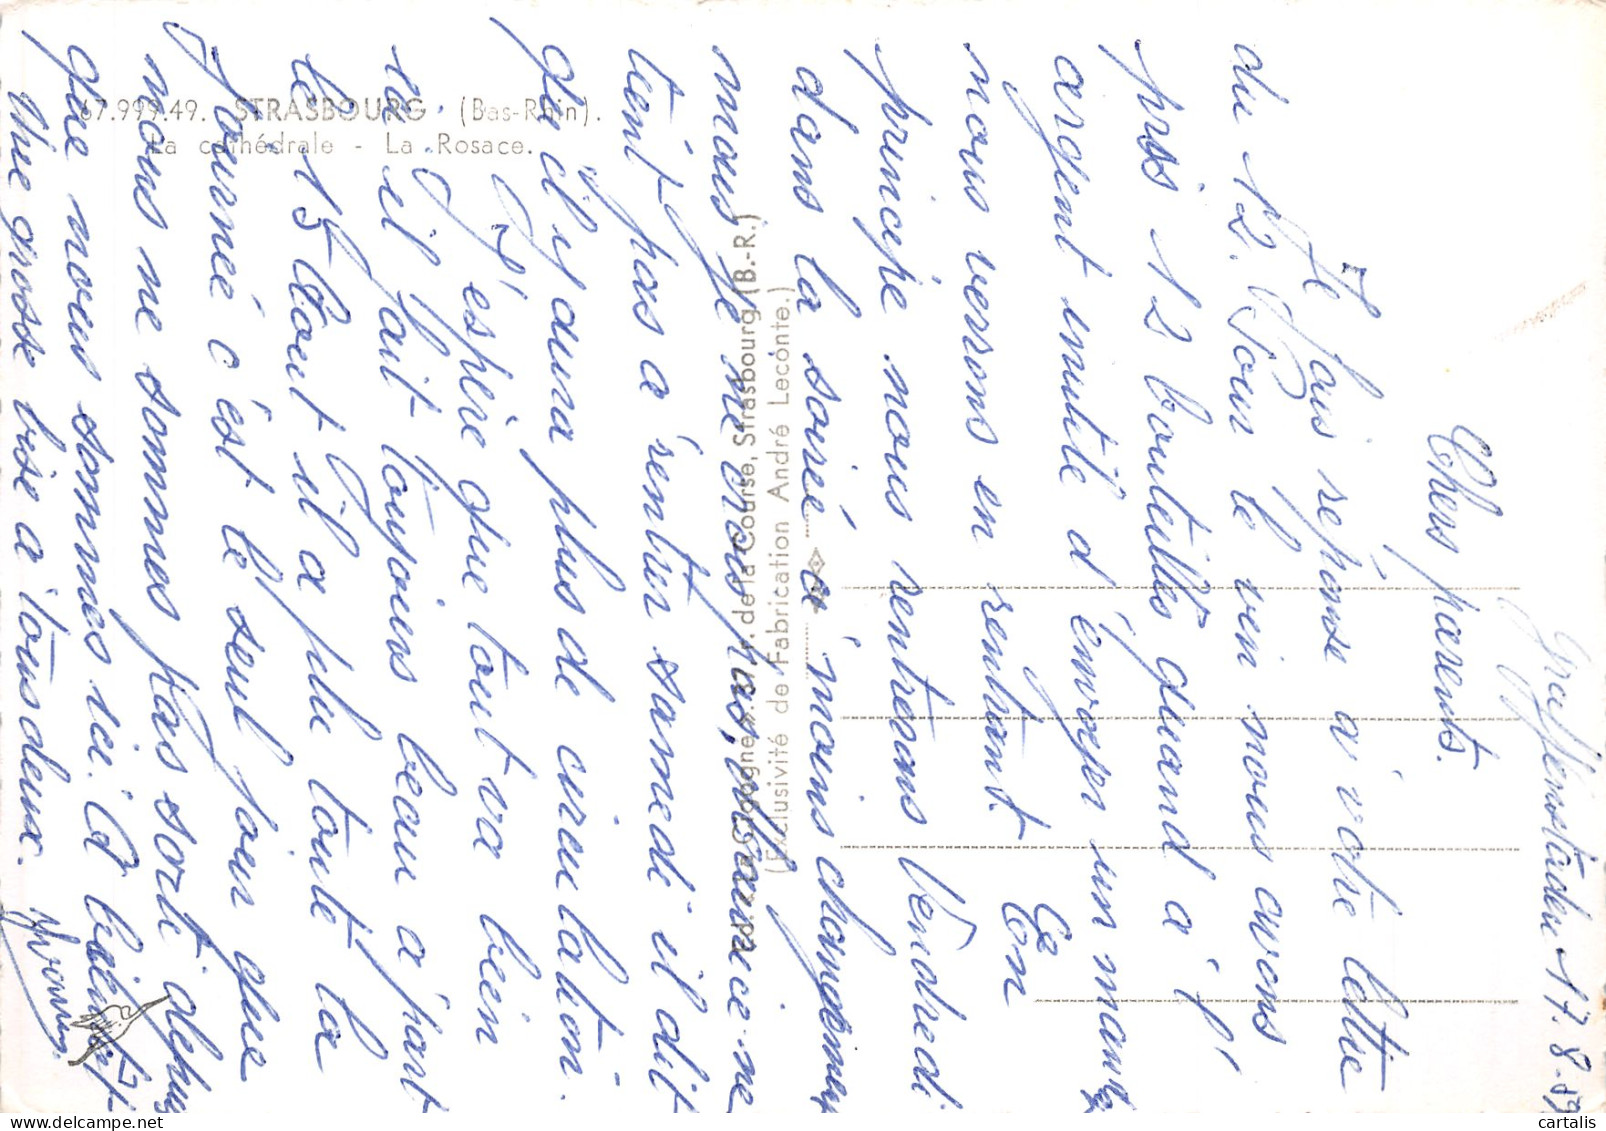 67.999.49. STRASBOURG (Bas-Rhin).
La cathédrale - La Rosace.
Ed. "La Cigogne", 37, r. de la Course, Strasbourg (B.-R.)
(Exclusivité de Fabrication André Leconte.)
17.8.
Chers parents.
Je fais réponse a' votre lettre
du 12. Pour le vin nous avons
pris 12 bouteilles quand a' l'
argent inutile d'envoyer un mandat
nous verrons en rentrant. En
principe nous rentrerons Vendredi
dans la soirée a' moins changement
mais je ne crois pas, Maurice ne
tient pas a' rentrer samedi il dit
qu'il y aura plus de circulation.
J'espère que tout va bien
ici il fait toujours beau a' part
le 15 Aout il a plu toute la
journée c'est le seul jour que
nous ne sommes pas sorti depuis
que nous sommes ici. A bientôt
Une grosse bise a' tous deux. Yvonne.
cartalis